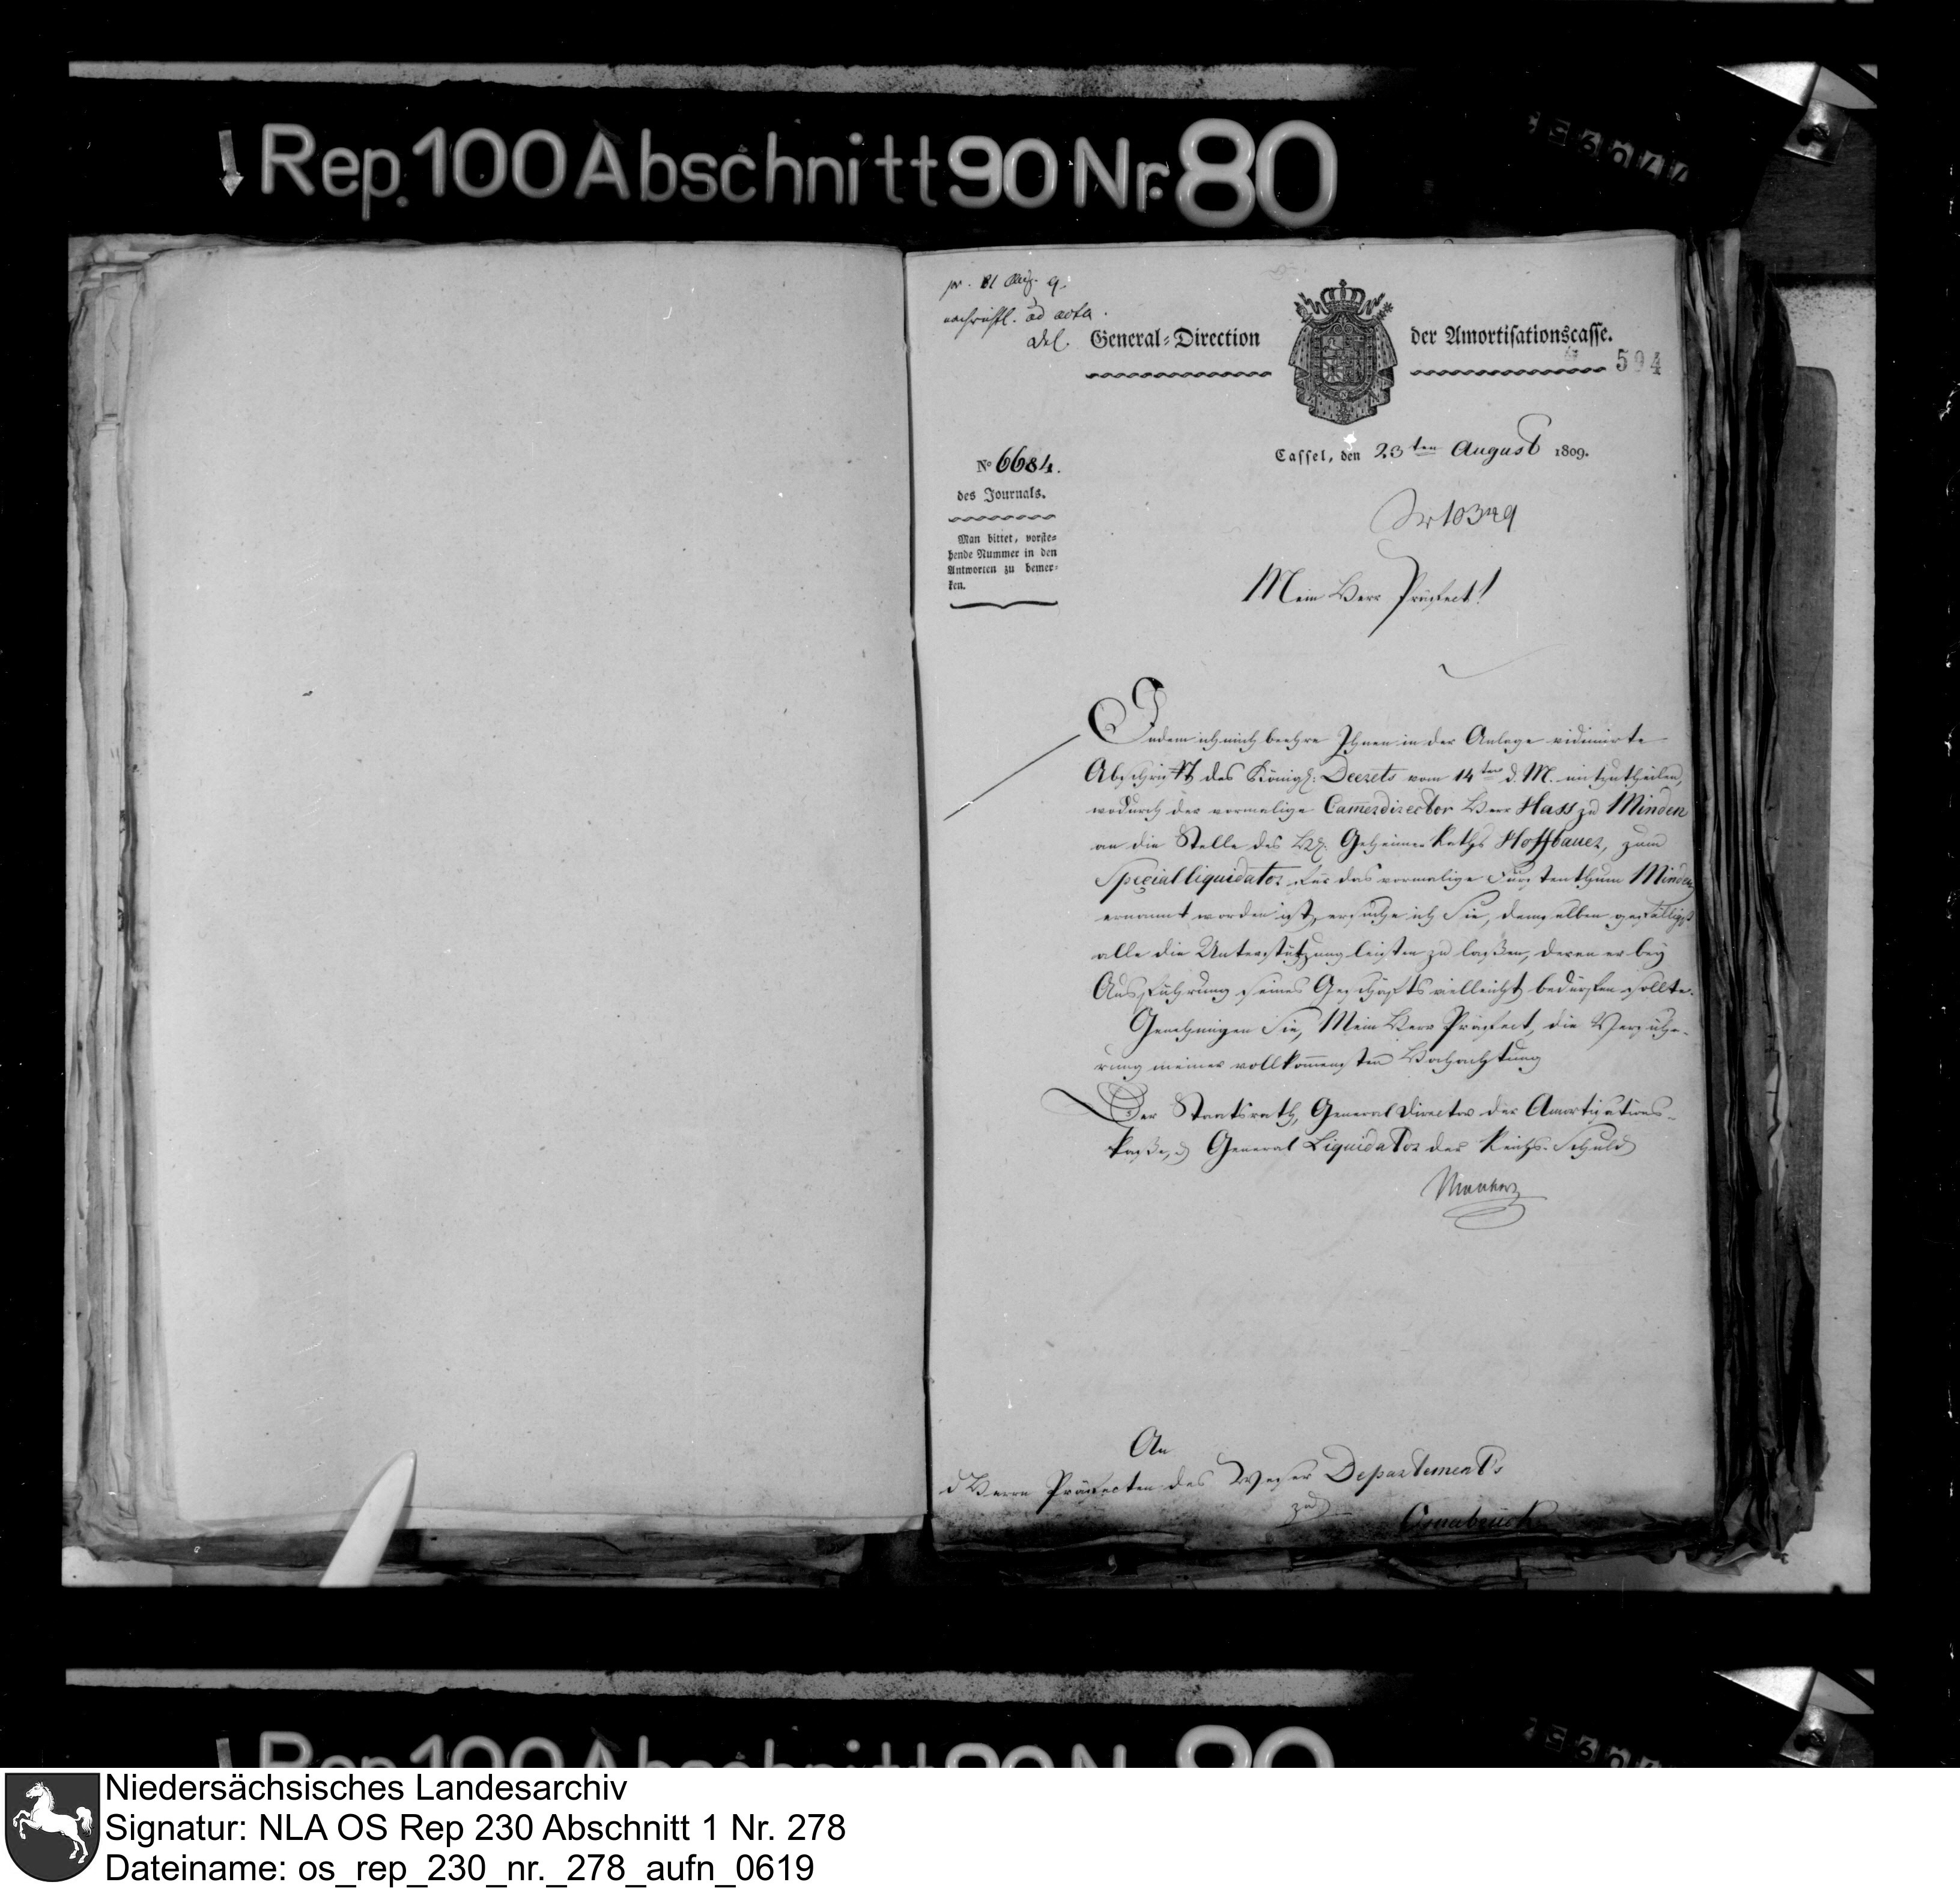 Rep. 100 Abschnitt 90 Nr. 80
pr. 31 Aug. 9.
nachrichtl. ad acta.
Del.
General-Direction der Amortisationscasse.
594
Cassel, den 23ten August 1809.
No 6684.
des Journals.
Man bittet, vorste-
hende Nummer in den
Antworten zu bemer-
ken.
Mein Herr Präfect!
Indem ich mich beehre Ihnen in der Anlage vidimirte
Abschrift des Königl: Decrets vom 14ten d. M. mitzutheilen,
wodurch der vormalige Cam̄erdirector Herr Hass zu Minden
an die Stelle des Geheimen Raths Hoffbauer, zum
Special liquidator für das vormalige Fürstenthum Minden
ernannt worden ist, ersuche ich Sie, demselben gefälligst
alle die Unterstützung leisten zu laßen, deren er bey
Ausführung seines Geschäfts vielleicht bedürfen sollte.
Genehmigen Sie, Mein Herr Präfect, die Versiche-
rung meiner vollkom̄ensten Hochachtung
Der Staatsrath, General Director der Amortisations-
kaße, General Liquidator der Reichs-Schuld
An
d Herrn Präfecten des Weser Departements
zu
Osnabrück
Rep. 100 Abschnitt 90 Nr. 80
Niedersächsisches Landesarchiv
Signatur: NLA OS Rep 230 Abschnitt 1 Nr. 278
Dateiname: os_rep_230_nr._278_aufn_0619